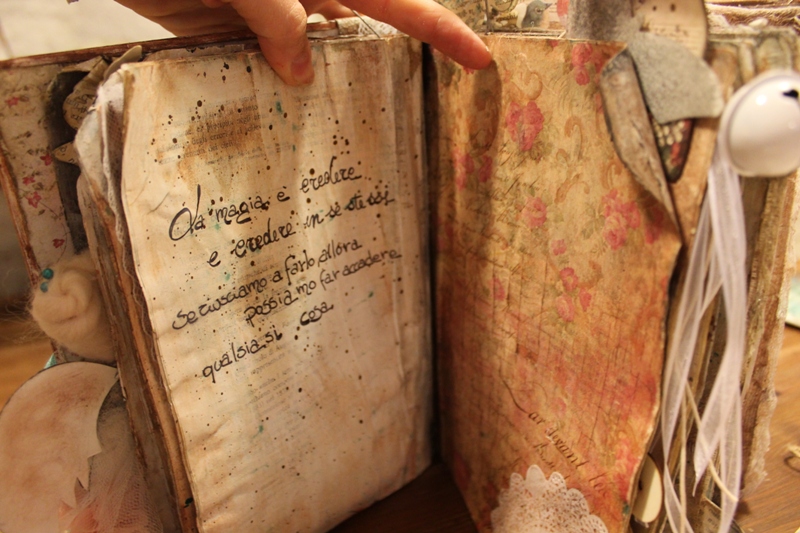 La magia è credere
e credere in se stessi
se riusciamo a farlo allora
possiamo far accadere
qualsiasi cosa